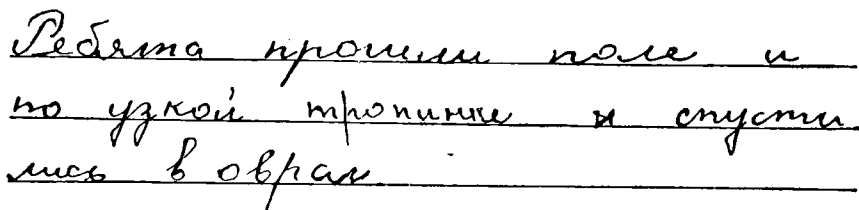 Ребята прошли поле и
по узкой тропинке и спусти
лись в овраг